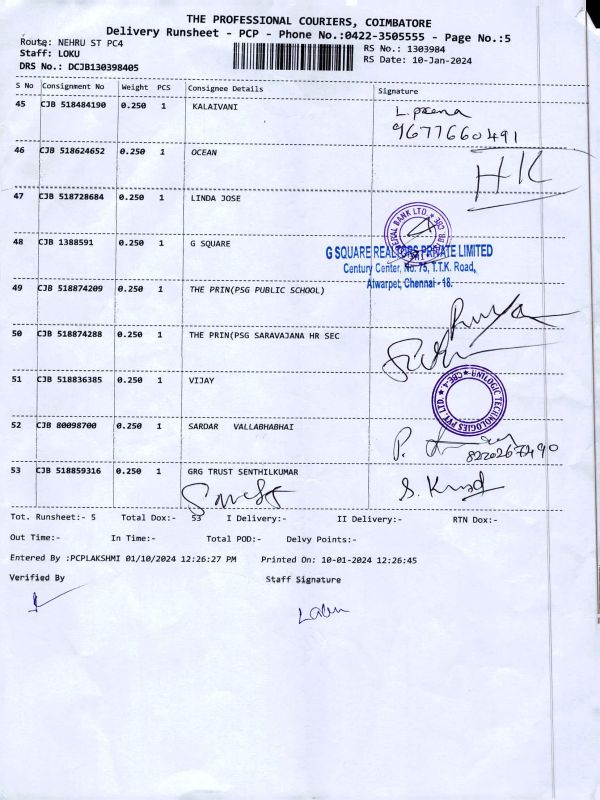 THE PROFESSIONAL COURIERS, COIMBATORE
Delivery Runsheet - PCP - Phone No.:0422-3505555 - Page No.:5
Route: NEHRU ST PC4
RS No.: 1303984
Staff: LOKU
RS Date: 10-Jan-2024
DRS No.: DCJB130398405
S No Consignment No Weight PCS Consignee Details Signature
45 CJB 518484190 0.250 1 KALAIVANI
9677660491
46 CJB 518624652 0.250 1 OCEAN
HK
47 CJB 518728684 0.250 1 LINDA JOSE
48 CJB 1388591 0.250 1 G SQUARE
G SQUARE REALTORS PRIVATE LIMITED
Century Center, No. 75, T.T.K. Road,
Alwarpet, Chennai - 18.
49 CJB 518874209 0.250 1 THE PRIN(PSG PUBLIC SCHOOL)
50 CJB 518874288 0.250 1 THE PRIN(PSG SARAVAJANA HR SEC
51 CJB 518836385 0.250 1 VIJAY
TECHNOLOGIES PVT. LTD
52 CJB 80098700 0.250 1 SARDAR VALLABHABHAI
P.
53 CJB 518859316 0.250 1 GRG TRUST SENTHILKUMAR
Tot. Runsheet:- 5 Total Dox:- 53 I Delivery:- II Delivery:- RTN Dox:-
Out Time:- In Time:- Total POD:- Delvy Points:-
Entered By :PCPLAKSHMI 01/10/2024 12:26:27 PM Printed On: 10-01-2024 12:26:45
Verified By Staff Signature